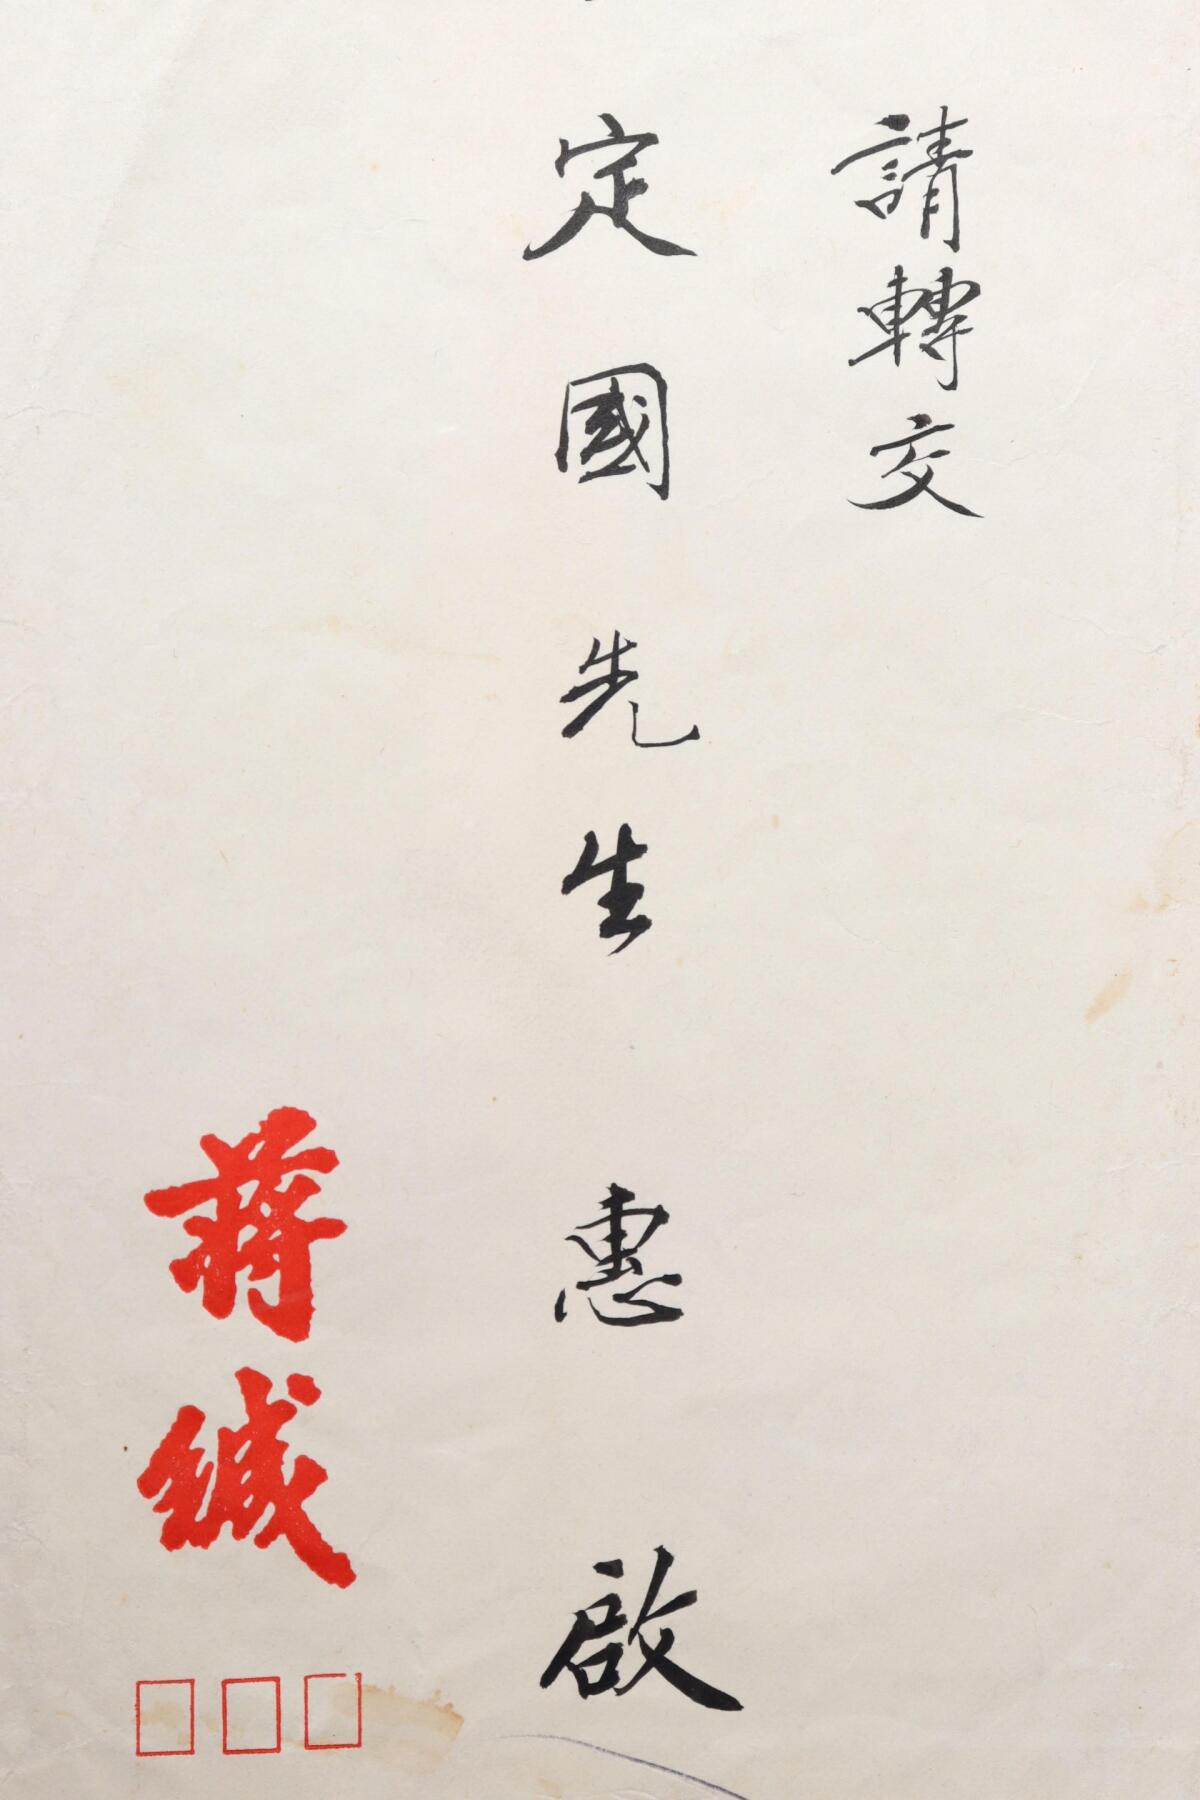 請轉交
定國先生惠啟
蔣緘